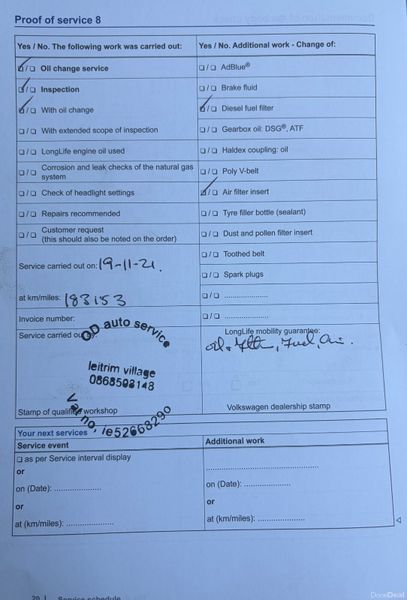 Proof of service 8
Yes / No. The following work was carried out:
☑/☐ Oil change service
☑/☐ Inspection
☑/☐ With oil change
☐/☐ With extended scope of inspection
☐/☐ LongLife engine oil used
☐/☐ Corrosion and leak checks of the natural gas
system
☐/☐ Check of headlight settings
☐/☐ Repairs recommended
☐/☐ Customer request
(this should also be noted on the order)
Service carried out on: 19-11-21.
at km/miles: 183153
Invoice number:
Service carried out
OD auto service
leitrim village
Vat no, ie52668290
Stamp of qualified workshop
Yes / No. Additional work - Change of:
☐/☐ AdBlue®
☐/☐ Brake fluid
☑/☐ Diesel fuel filter
☐/☐ Gearbox oil: DSG®, ATF
☐/☐ Haldex coupling: oil
☐/☐ Poly V-belt
☑/☐ Air filter insert
☐/☐ Tyre filler bottle (sealant)
☐/☐ Dust and pollen filter insert
☐/☐ Toothed belt
☐/☐ Spark plugs
☐/☐ ....................
☐/☐ ....................
LongLife mobility guarantee:
oil, filter, Fuel, air.
Volkswagen dealership stamp
Your next services
Service event
☐ as per Service interval display
or
on (Date): ....................
or
at (km/miles): ....................
Additional work
........................................
on (Date): ....................
or
at (km/miles): ....................
20 | Service schedule
DoneDeal